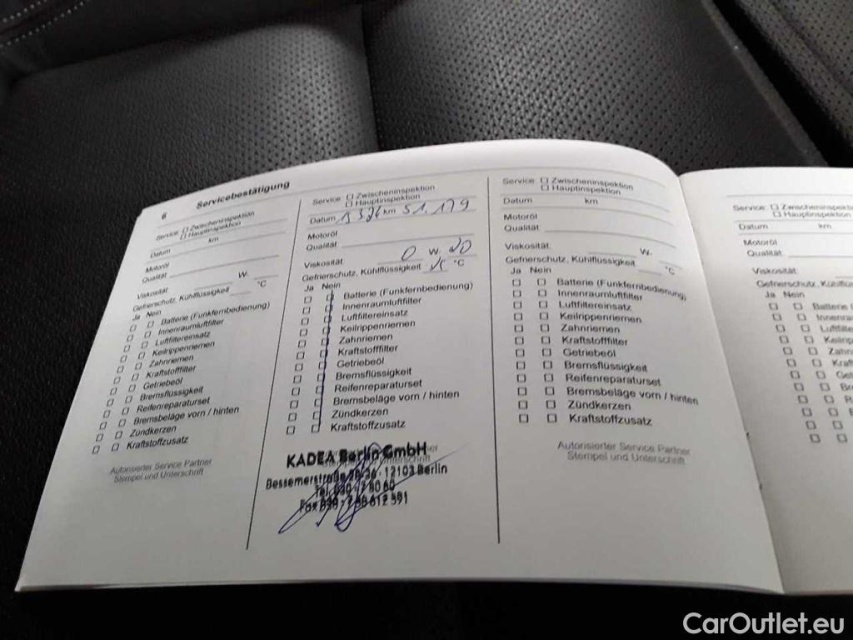 6 Servicebestätigung
Service: □ Zwischeninspektion
□ Hauptinspektion
Datum km
Motoröl
Qualität
Viskosität W- °C
Gefrierschutz, Kühlflüssigkeit
Ja Nein
□ □ Batterie (Funkfernbedienung)
□ □ Innenraumluftfilter
□ □ Luftfiltereinsatz
□ □ Keilrippenriemen
□ □ Zahnriemen
□ □ Kraftstofffilter
□ □ Getriebeöl
□ □ Bremsflüssigkeit
□ □ Reifenreparaturset
□ □ Bremsbeläge vorn / hinten
□ □ Zündkerzen
□ □ Kraftstoffzusatz
Autorisierter Service Partner
Stempel und Unterschrift
Service □ Zwischeninspektion
□ Hauptinspektion
Datum km 51.179
Motoröl
Qualität
Viskosität 0 W- 20
Gefrierschutz, Kühlflüssigkeit °C
Ja Nein
□ □ Batterie (Funkfernbedienung)
□ □ Innenraumluftfilter
□ □ Luftfiltereinsatz
□ □ Keilrippenriemen
□ □ Zahnriemen
□ □ Kraftstofffilter
□ □ Getriebeöl
□ □ Bremsflüssigkeit
□ □ Reifenreparaturset
□ □ Bremsbeläge vorn / hinten
□ □ Zündkerzen
□ □ Kraftstoffzusatz
KADEA Berlin GmbH
Bessemerstraße 12103 Berlin
Service □ Zwischeninspektion
□ Hauptinspektion
Datum km
Motoröl
Qualität
Viskosität W-
Gefrierschutz, Kühlflüssigkeit °C
Ja Nein
□ □ Batterie (Funkfernbedienung)
□ □ Innenraumluftfilter
□ □ Luftfiltereinsatz
□ □ Keilrippenriemen
□ □ Zahnriemen
□ □ Kraftstofffilter
□ □ Getriebeöl
□ □ Bremsflüssigkeit
□ □ Reifenreparaturset
□ □ Bremsbeläge vorn / hinten
□ □ Zündkerzen
□ □ Kraftstoffzusatz
Autorisierter Service Partner
Stempel und Unterschrift
Service: □ Zwischeninspektion
□ Hauptinspektion
Datum km
Motoröl
Qualität
Viskosität
Ja Nein
CarOutlet.eu